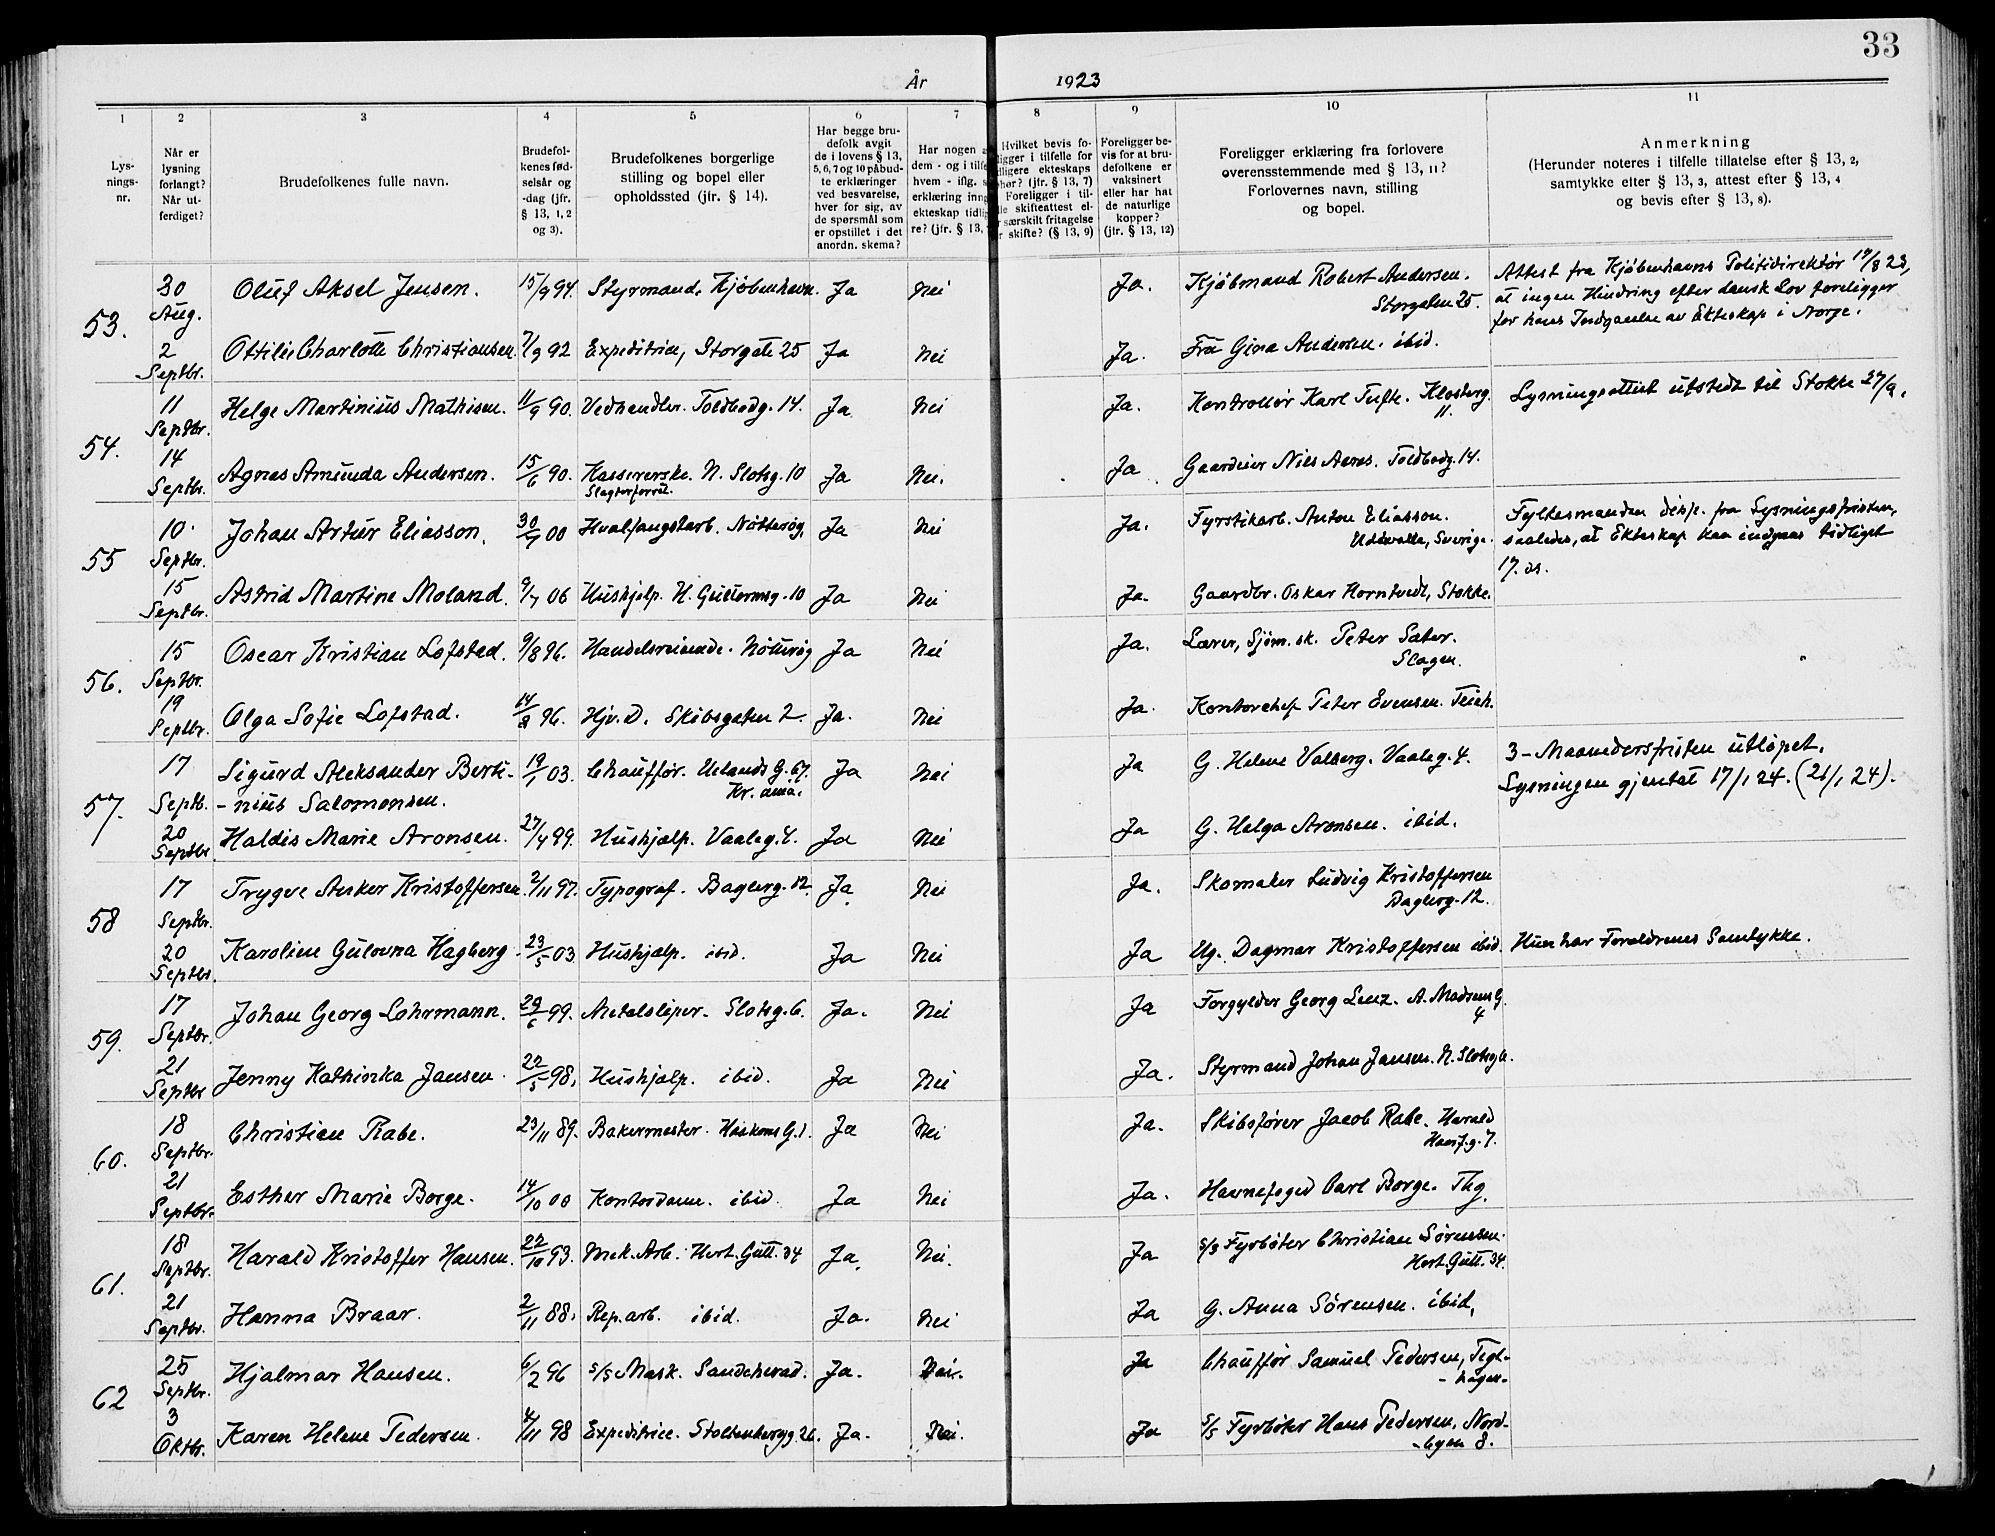 33
År 1923
1 2 3 4 5 6 7 8 9 10 11
Lys-
nings-
nr.
Når er
lysning
forlangt?
Når ut-
ferdiget?
Brudefolkenes fulle navn.
Brudefol-
kenes fød-
selsår og
-dag (jfr.
§ 13, 1, 2
og 3).
Brudefolkenes borgerlige
stilling og bopel eller
opholdssted (jfr. § 14).
Har begge bru-
defolk avgit
de i lovens § 13,
5, 6, 7 og 10 påbud-
te erklæringer
ved besvarelse,
hver for sig, av
de spørsmål som
er opstillet i det
anordn. skema?
Har nogen a
dem - og i tilfe
hvem - iflg.
erklæring inng
ekteskap tidlig
re? (jfr. § 13,
Hvilket bevis fo-
ligger i tilfelle for
dligere ekteskaps
phør? (jfr. § 13, 7)
Foreligger i til-
lle skifteattest el-
r særskilt fritagelse
r skifte? (§ 13, 9)
Foreligger be-
vis for at bru-
defolkene er
vaksinert
eller har hat
de naturlige
kopper?
(jfr. § 13, 12)
Foreligger erklæring fra forlovere
overensstemmende med § 13, 11?
Forlovernes navn, stilling
og bopel.
Anmerkning
(Herunder noteres i tilfelle tillatelse efter § 13, 2,
samtykke efter § 13, 3, attest efter § 13, 4
og bevis efter § 13, 8).
53. 30 Aug. Oluf Aksel Jensen. 15/9 94. Styrmand, Kjøbenhavn. Ja Nei Ja. Kjøbmand Robert Andersen.
Storgaten 25.
Attest fra Kjøbenhavns Politidirektør 17/8 23,
at ingen Hindring efter dansk Lov foreligger
for hans Indgaaelse av Ekteskap i Norge.
2 Septbr. Ottilie Charlotte Christiansen. 7/9 92 Expeditrice, Storgate 25 Ja Nei Ja. Fru Gina Andersen. ibid.
54. 11 Septbr. Helge Martinius Mathisen. 11/9 90. Vedhandler. Toldbodg. 14. Ja Nei Ja. Kontrollør Karl Tufte. Klosterg.
11.
Lysningsattest utstedt til Stokke 27/9.
14 Septbr. Agnes Amunda Andersen. 15/6 90. Kassererske. N. Slotsg. 10 Ja Nei. Ja Gaardeier Nils Aenes. Toldbodg. 14.
Slagterforret.
55 10 Septbr. Johan Artur Eliasson. 30/7 00 Hvalfangstarb. Nøtterøy, Ja Nei Ja. Fyrstikarb. Anton Eliasson.
Uddevalla, Sverige.
Fylkesmanden disp. fra Lysningsfristen,
saaledes, at Ekteskap kan indgaas tidligst
17. ds.
15 Septbr. Astrid Martine Moland. 9/7 06 Hushjelp. H. Guttormsg. 10 Ja Nei Ja. Gaardbr. Oskar Horntvedt, Stokke.
56. 15 Septbr. Oscar Kristian Lofstad. 9/8 96. Handelsreisende. Nøtterøy Ja Nei Ja. Lærer, Sjøm.sk. Peter Sater.
Slagen.
19 Septbr. Olga Sofie Lofstad. 14/8 96. Hjv.D. Skibsgaten 2. Ja. Nei Ja. Kontorchef Peter Evensen. Teieh.
57. 17 Septb. Sigurd Aleksander Berti- 19/1 03. Chauffør. Uelands G. 67. Ja Nei Ja G. Helene Valberg. Vaaleg. 4.
Kr.ania.
-nius Salomonsen.
3-Maanedersfristen utløpet.
Lysningen gjentat 17/1 24. (21/1 24).
20 Septbr. Haldis Marie Aronsen. 27/4 99. Hushjælp. Vaaleg. 4. Ja Nei Ja G. Helga Aronsen. ibid.
58 17 Septbr. Trygve Anker Kristoffersen. 2/11 97. Typograf. Bagerg. 12. Ja Nei Ja. Skomaker Ludvig Kristoffersen
Bagerg. 12.
20 Septbr. Karoline Gulovna Hagberg 23/5 03 Hushjælp. ibid. Ja Nei Ja Ug. Dagmar Kristoffersen ibid. Hun har Foreldrenes Samtykke.
59. 17 Septbr. Johan Georg Lohrmann. 29/6 99. Metalsliper. Slotsg. 6. Ja. Nei Ja Forgylder Georg Lenz. A. Madsens G.
4
21 Septbr Jenny Kathinka Jansen. 22/5 98. Hushjælp. ibid. Ja Nei Ja. Styrmand Johan Jansen. N. Slotsg.
60. 18 Septbr. Christian Rabe. 23/11 89. Bakermester. Haakons G. 1. Ja Nei Ja. Skibsfører Jacob Rabe. Harald
Haarf.g. 7.
21 Septbr. Esther Marie Borge. 14/10 00 Kontordame. ibid. Ja Nei Ja. Havnefoged Carl Borge. Tbg.
61. 18 Septbr. Harald Kristoffer Hansen. 22/10 93. Mek. Arb. Hert. Gutt. 34 Ja. Nei. Ja s/s Fyrbøter Christian Sørensen.
Hert. Gutt. 34.
21 Septbr. Hanna Braar. 2/11 88. Rep.arb. ibid. Ja. Nei Ja G. Anna Sørensen. ibid.
62 25 Septbr. Hjalmar Hansen. 6/2 96 s/s Mask. Sandeherad. Ja. Nei. Ja Chauffør Samuel Pedersen, Tegl-
-hagen-
3 Oktbr. Karen Helene Pedersen. 4/11 98 Expeditrice. Stoltenbergg. 26. Ja. Nei. Ja s/s Fyrbøter Hans Pedersen, Nord-
-byen 8.